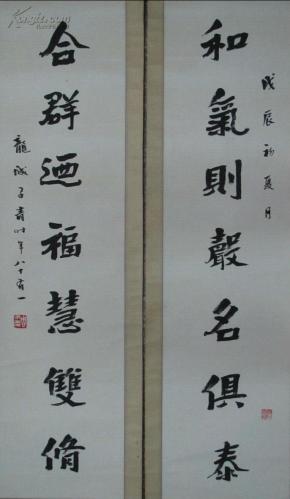 戊辰初夏月
和氣則聲名俱泰
合群迺福慧雙脩
龍城子青时年八十有一